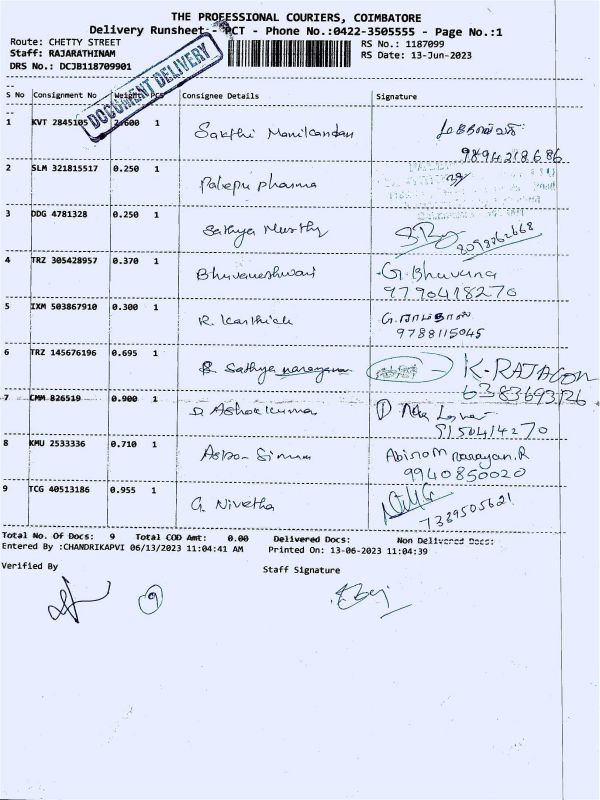 THE PROFESSIONAL COURIERS, COIMBATORE
Delivery Runsheet - PCT - Phone No.:0422-3505555 - Page No.:1
Route: CHETTY STREET
RS No.: 1187099
Staff: RAJARATHINAM
RS Date: 13-Jun-2023
DRS No.: DCJB118709901
DOCUMENT DELIVERY
S No Consignment No Weight PCS Consignee Details Signature
1 KVT 2845105 2.600 1 Sakthi Manikandan
9894218686
2 SLM 321815517 0.250 1 Palepu pharma
3 DDG 4781328 0.250 1 Sathya Murthy
8098762668
4 TRZ 305428957 0.370 1 Bhuvaneshwari G. Bhuvana
9790418270
5 IXM 503867910 0.300 1 R. Karthick
9788115045
6 TRZ 145676196 0.695 1 S. Sathya narayanan K-RAJAGON
6383693126
7 CMM 826519 0.900 1 Ashok kumar
9150414270
8 KMU 2533336 0.710 1 narayan.R
9940850020
9 TCG 40513186 0.955 1 G. Nivetha
7339505621
Total No. Of Docs: 9 Total COD Amt: 0.00 Delivered Docs: Non Delivered Docs:
Entered By :CHANDRIKAPVI 06/13/2023 11:04:41 AM Printed On: 13-06-2023 11:04:39
Verified By Staff Signature
9